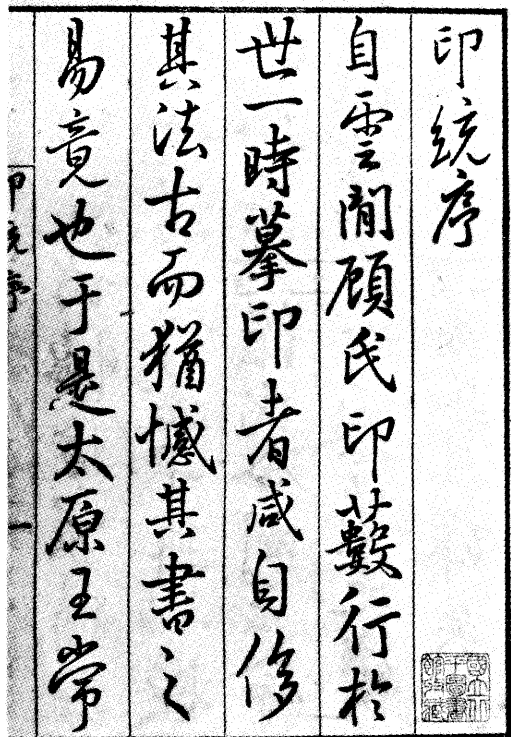 印統序
自雲間顧氏印藪行於
世一時摹印者咸自侈
其法古而猶憾其書之
易竟也于是太原王常
印統序 一